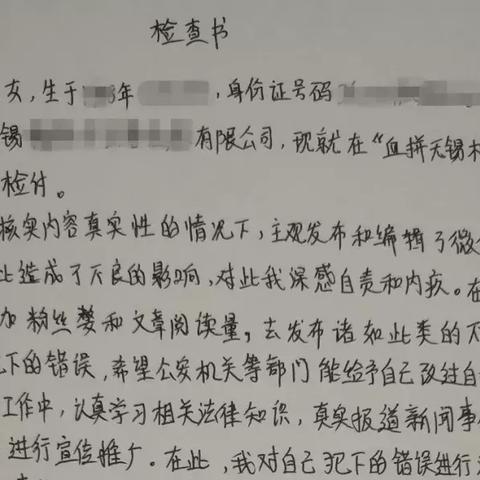 检查书
女，生于 年 ，身份证号码
锡 有限公司，现就在“血拼无锡
检付。
核实内容真实性的情况下，主观发布和编辑了微
造成了不良的影响，对此我深感自责和内疚。在
加粉丝数和文章阅读量，去发布诸如此类的不
下的错误，希望公安机关等部门能给予自己改过自
工作中，认真学习相关法律知识，真实报道新闻事
进行宣传推广。在此，我对自己犯下的错误进行